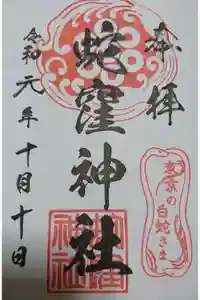 奉拝
蛇窪神社
令和元年十月十日
東京の
白蛇さま